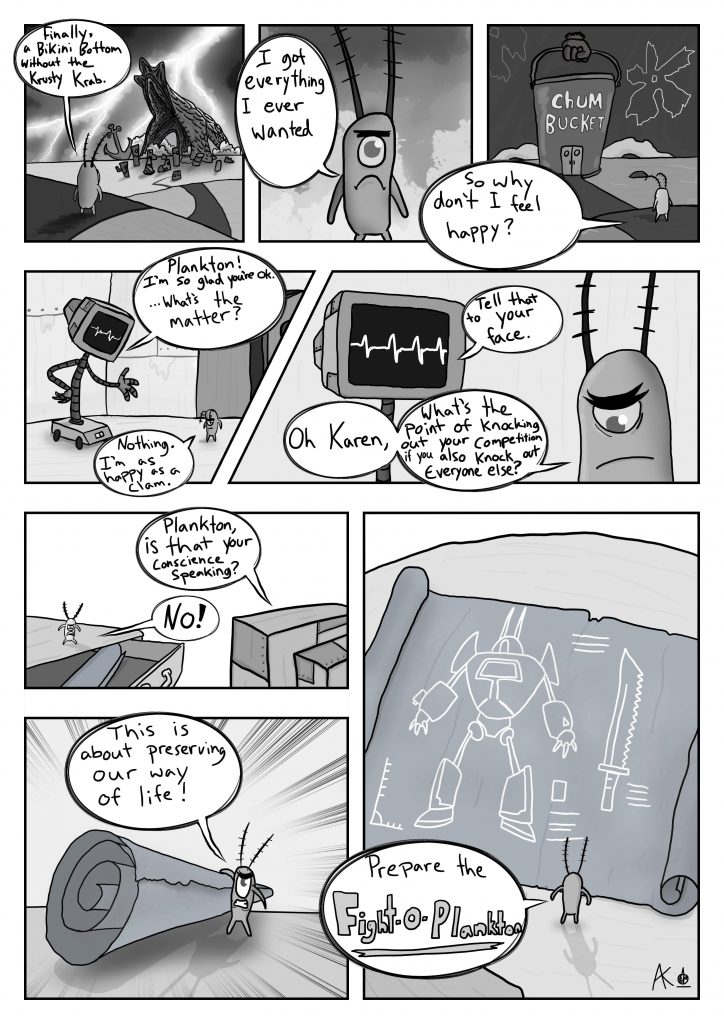 Finally,
a Bikini Bottom
without the
Krusty Krab.
I got
everything
I ever
wanted
CHUM
BUCKET
So why
don't I feel
happy?
Plankton!
I'm so glad you're ok.
...What's the
matter?
Nothing.
I'm as
happy as a
clam.
Tell that
to your
face.
Oh Karen,
What's the
Point of Knocking
out your Competition
if you also Knock out
Everyone else?
Plankton,
is that your
Conscience
Speaking?
No!
This is
about preserving
our way
of life!
Prepare the
Fight-O-Plankton
AK